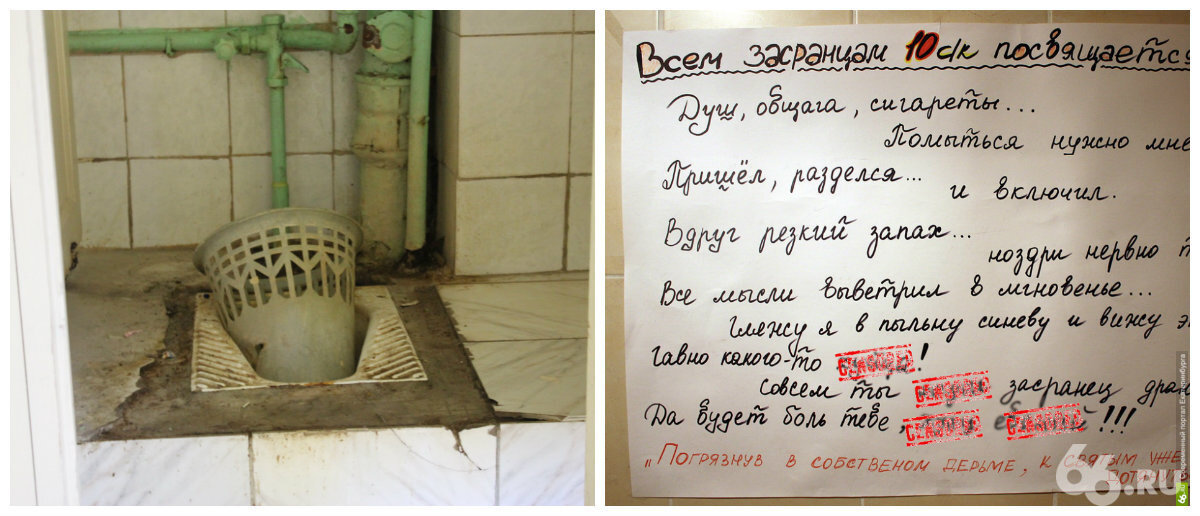 Всем засранцам 10 с/к посвящается
Душ, общага, сигареты...
Помыться нужно мне
Пришёл, разделся...
и включил.
Вдруг резкий запах...
ноздри нервно
Все мысли выветрил в мгновенье...
Гляжу я в пыльну синеву и вижу
гавно какого-то !
Совсем ты засранец
Да будет боль тебе, !!!
"Погрязнув в собственом дерьме, к святым уже
66.RU
66.ru Современный портал Екатеринбурга